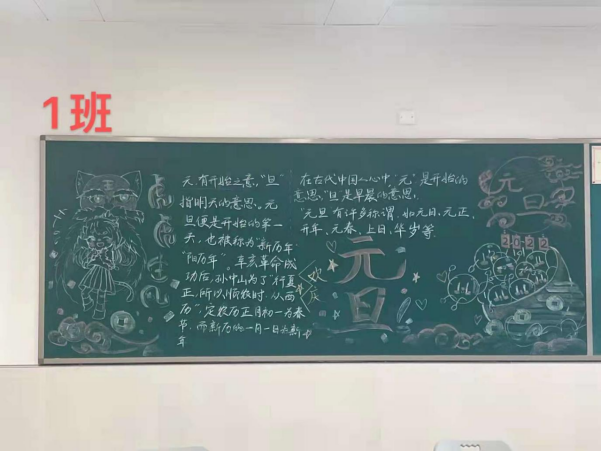 1班
虎虎生
元,有开始之意,“旦”
指明天的意思。元
旦便是开始的第一
天,也被称为“新历年”
“阳历年”。辛亥革命成
功后,孙中山为了“行夏
正,所以顺农时,从西
历”,定农历正月初一为春
节,而新历的一月一日为新
年
在古代中国人心中,“元”是开始的
意思,“旦”是早晨的意思.
“元旦”有许多称谓,如元日、元正、
开年、元春、上日、华岁等
元
旦
元
旦
2022
1.1